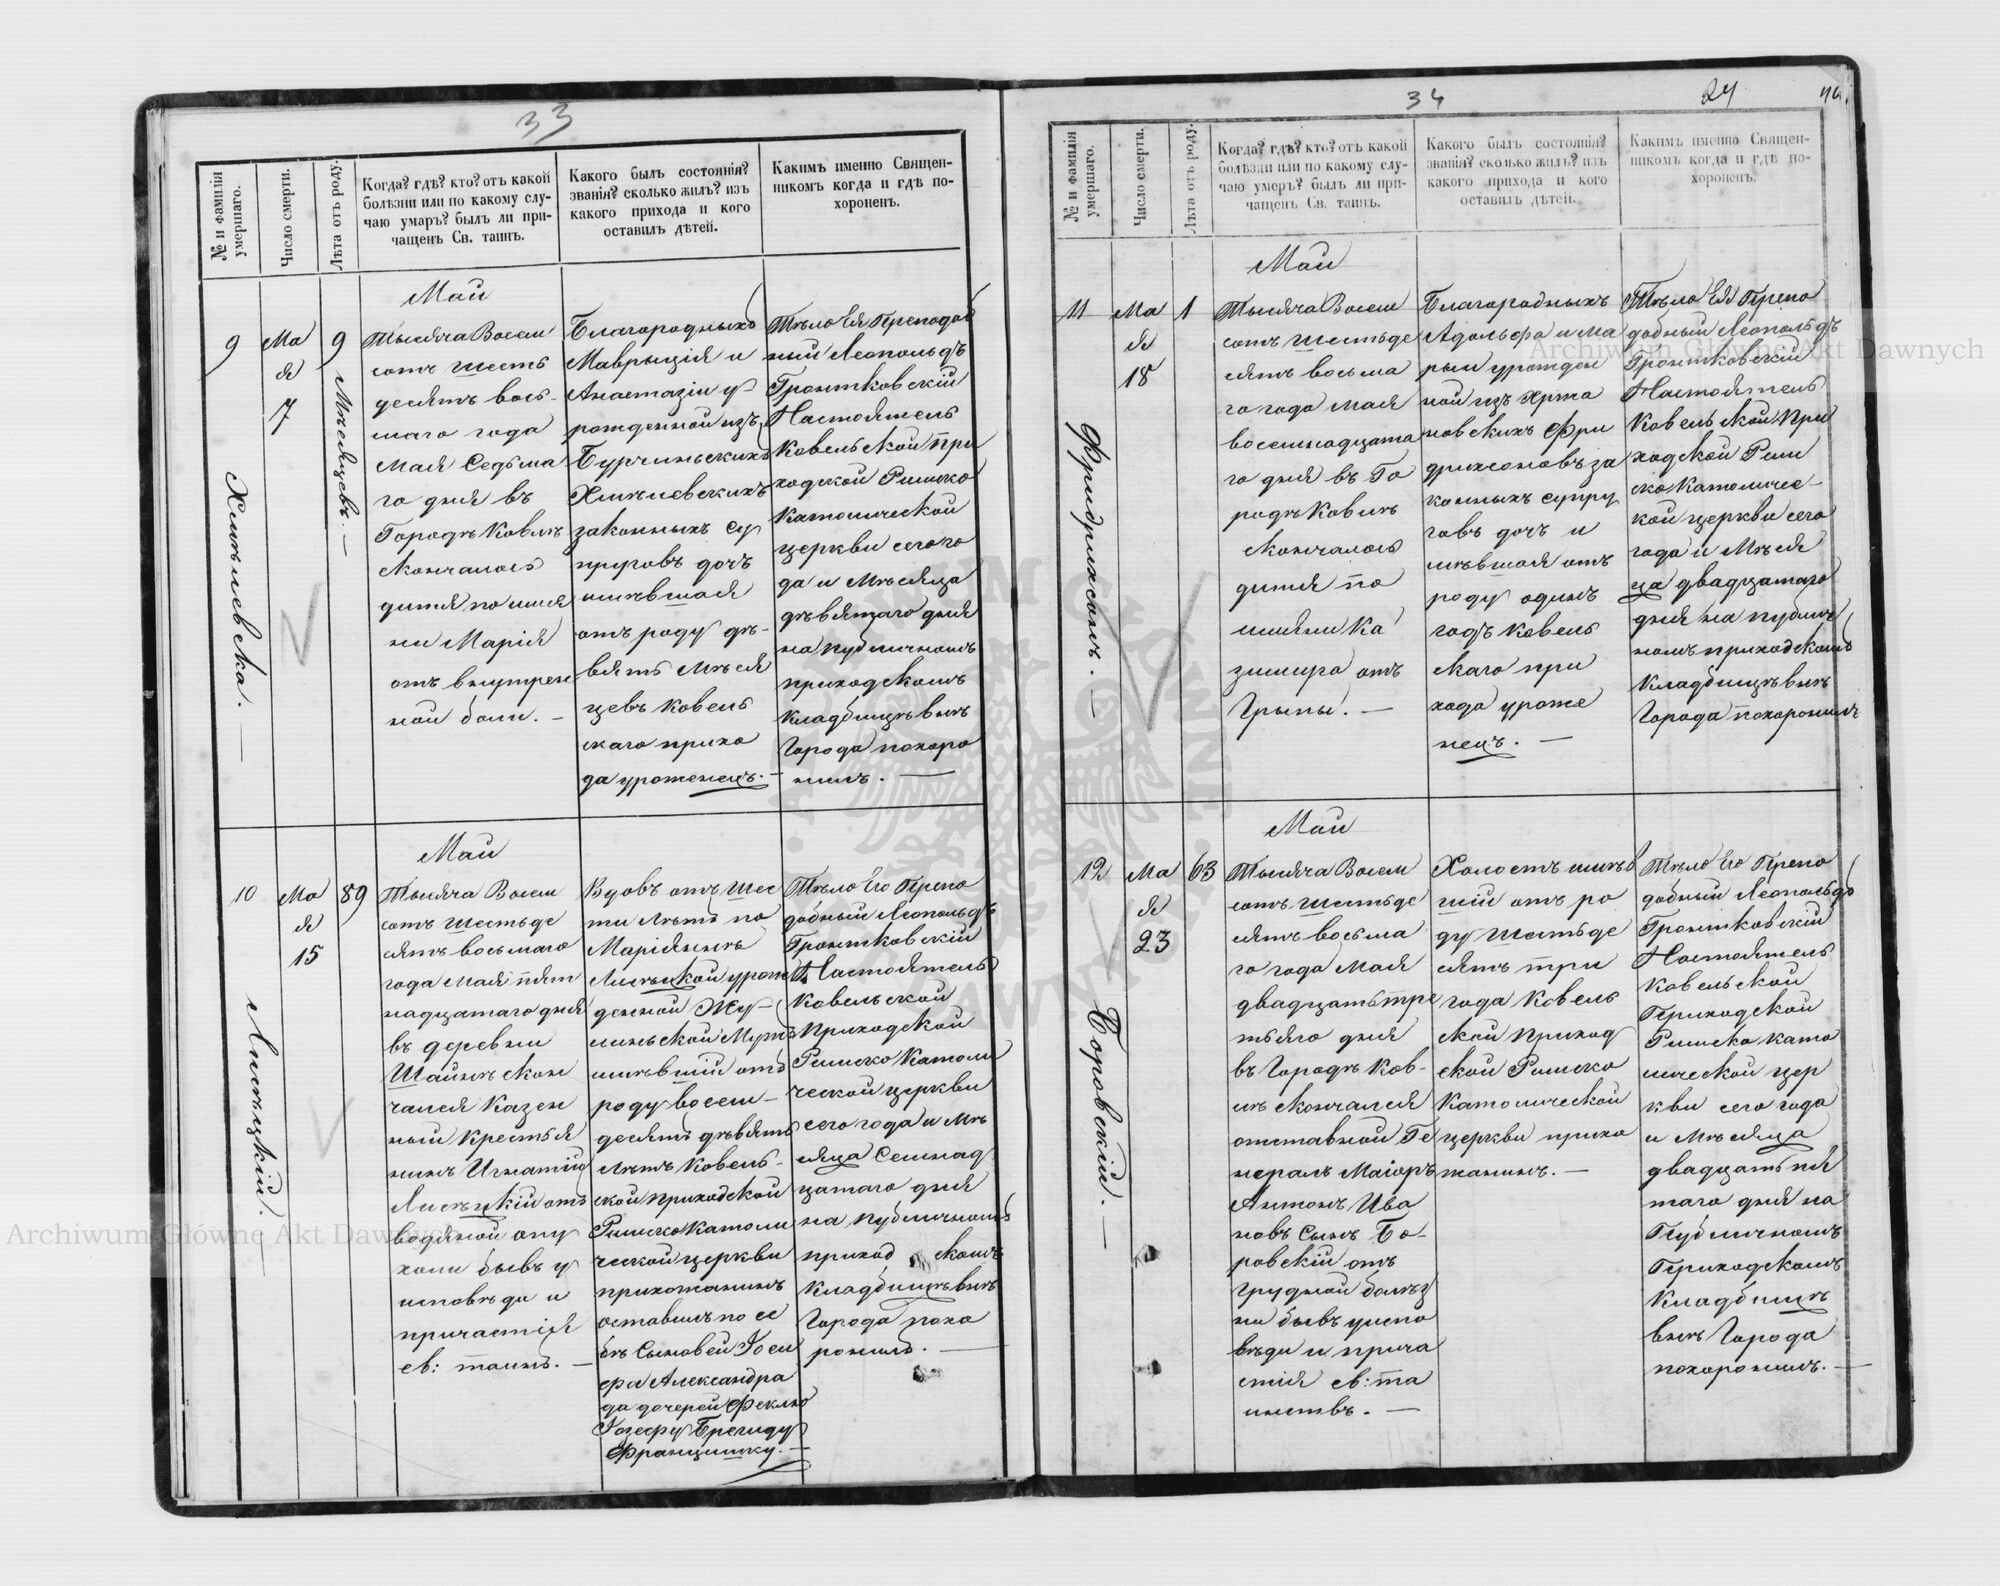 33
№ и фамилія умершаго.
Число смерти.
Лѣта отъ роду.
Когда? гдѣ? кто? отъ какой
болѣзни или по какому слу-
чаю умеръ? былъ ли при-
чащенъ Св. таинъ.
Какого былъ состоянія?
званія? сколько жилъ? изъ
какого прихода и кого
оставилъ дѣтей.
Какимъ именно Священ-
никомъ когда и гдѣ по-
хороненъ.
9
Хмѣлевска. —
Ма
я
7
9
Мѣсяцевъ. —
Май
Тысяча Восем
сотъ шесть
десятъ вось-
маго года
мая седьма
го дня въ
Городѣ Ковлѣ
скончалось
дитя по имя
ни Марія
отъ внутрен
ной боли. —
Благородныхъ
Маврыція и
Анастазіи у-
рожденной изъ
Бурчиньскихъ
Хмѣлевскихъ
законныхъ су
пруговъ дочъ
имѣвшая
отъ роду дѣ-
вять мѣся
цевъ Ковель
скаго прихо
да уроженецъ. —
Тѣло Ея Преподоб
ный Леопольдъ
Гронтковскій
Настоятель
Ковельской При
ходской Римско
Католической
церкви сего го
да и Мѣсяца
дѣвятаго дня
на публичномъ
приходскомъ
кладбищѣ внѣ
Города похоро
нилъ. —
10
Лисѣцкій. —
Ма
я
15
89
Май
Тысяча Восем
сотъ шестьде
сятъ восьмаго
года мая пят
надцатаго дня
въ деревни
Шайнѣ скон
чался Казен
ный крестья
нинъ Игнатій
Лисѣцкій отъ
водяной опу
холи бывъ у
исповѣди и
причастія
св: таинъ. —
Вдовъ отъ шес
ти лѣтъ по
Маріяннѣ
Лисѣцкой урож
денной Жу-
линьской Мужъ
имѣвшій отъ
роду восем-
десятъ дѣвять
лѣтъ Ковель-
ской приходской
Римско Катол
ческой церкви
прихожанинъ
оставилъ по се
бѣ Сыновей Іоси
фа Александра
да дочерей Феклю
Іозефу Бригиду
Францишку. —
Тѣло Его Препо
добный Леопольдъ
Гронтковскій
Настоятель
Ковельской
Приходской
Римско Католи
ческой церкви
сего года и мѣ
сяца семнад
цатаго дня
на публичномъ
приход скомъ
кладбищѣ внѣ
Города похо
ронилъ. —
34
24
№ и фамилія умершаго.
Число смерти.
Лѣта отъ роду.
Когда? гдѣ? кто? отъ какой
болѣзни или по какому слу-
чаю умеръ? былъ ли при-
чащенъ Св. таинъ.
Какого былъ состоянія?
званія? сколько жилъ? изъ
какого прихода и кого
оставилъ дѣтей.
Какимъ именно Священ-
никомъ когда и гдѣ по-
хороненъ.
11
Фридрихсонъ. —
Ма
я
18
1
Май
Тысяча Восем
сотъ шестьде
сятъ восьма
го года мая
восемнадцата
го дня въ Го
родѣ Ковлѣ
скончалось
дитя по
имяни Ка
зимира отъ
Грыпы. —
Благородныхъ
Адольфа и Ма
рыи урожден
ной изъ Хржа
новскихъ Фри
дрихсоновъ за
конныхъ супру
говъ дочъ и
мѣвшая отъ
роду одинъ
годъ Ковель
скаго при
хода уроже
нецъ. —
Тѣло Ея Препо
добный Леопольдъ
Гронтковскій
Настоятель
Ковельской При
ходской Рим
ско Католичес-
кой церкви сего
года и Мѣся
ца двадцатаго
дня на публич
номъ приходскомъ
кладбищѣ внѣ
Города похоронилъ
12
Боровскій. —
Ма
я
23
63
Май
Тысяча Восем
сотъ шестьде
сятъ восьма
го года мая
двадцать тре
тьяго дня
въ Городѣ Ков-
лѣ скончался
отставной Ге
нералъ Маіоръ
Антонъ Ива
новъ сынъ Бо-
ровскій отъ
грудной болѣз
ни бывъ у испо
вѣди и прича
стія св: та
инствъ. —
Холостъ имѣв
шій отъ ро
ду шестьде
сятъ три
года Ковель
ской Приход
ской Римско
Католической
церкви прихо
жанинъ. —
Тѣло Его Препо
добный Леопольдъ
Гронтковскій
Настоятель
Ковельской
Приходской
Римско Като
лической цер
кви сего года
и Мѣсяца
двадцать пя
таго дня на
Публичномъ
Приходскомъ
Кладбищѣ
внѣ Города
похоронилъ. —
Archiwum Główne Akt Dawnych
Archiwum Główne Akt Dawnych